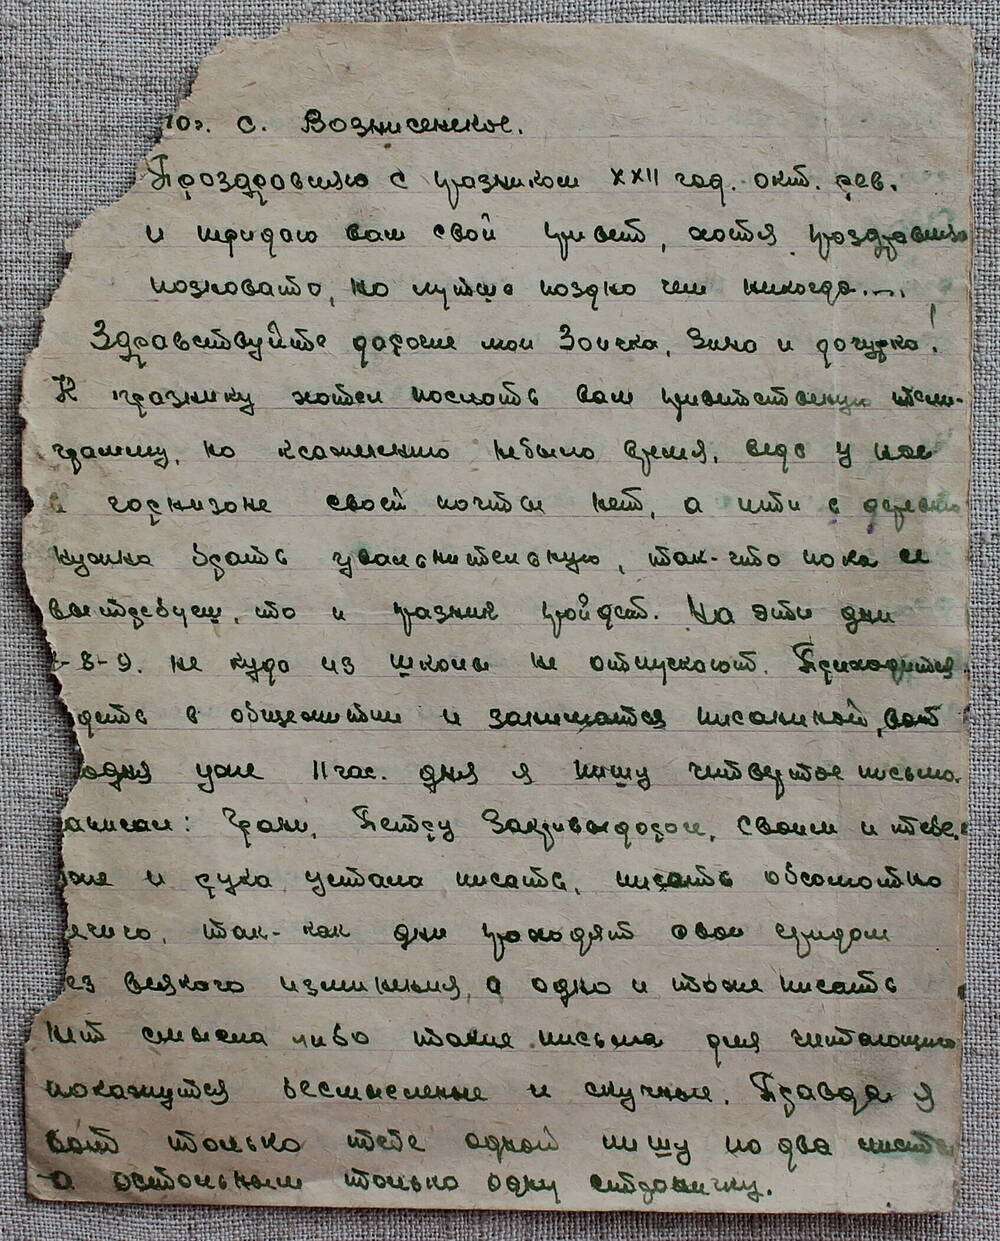 10г. с. Вознисенское.
Проздровляю с празником XXII год. окт. рев.
и придаю вам свой привет, хотя проздравляю
позновато, но лутше поздно чем никогда....
Здравствуйте дорогие мои Зоичка, Зина и дочурка!
К празнику хотел послать вам приветственую теле-
грамму, но ксожелению небыло время, ведь у нас
в горнизоне своей почты нет, а итти в деревню
нужно брать увальнительную, так-что пока ее
вытребуеш, то и празник пройдет. На эти дни
-8-9. не куда из школы не отпускают. Приходится
деть в общежитии и заниматся писаниной, вот
одня уже 11 час. дня я пишу читвертое письмо.
аписал: Грани, Петру своим и тебе.
оже и рука устала писать, писать обсолютно
ечиго, так-как дни проходят свои чиридом
ез всякого изминения, а одно и тоже писать
нет смысла либо такие письма для читающиго
покажутся бессмысленые и скучные. Правда я
вот только тебе одной пишу по два листа
а остольным только одну страничку.